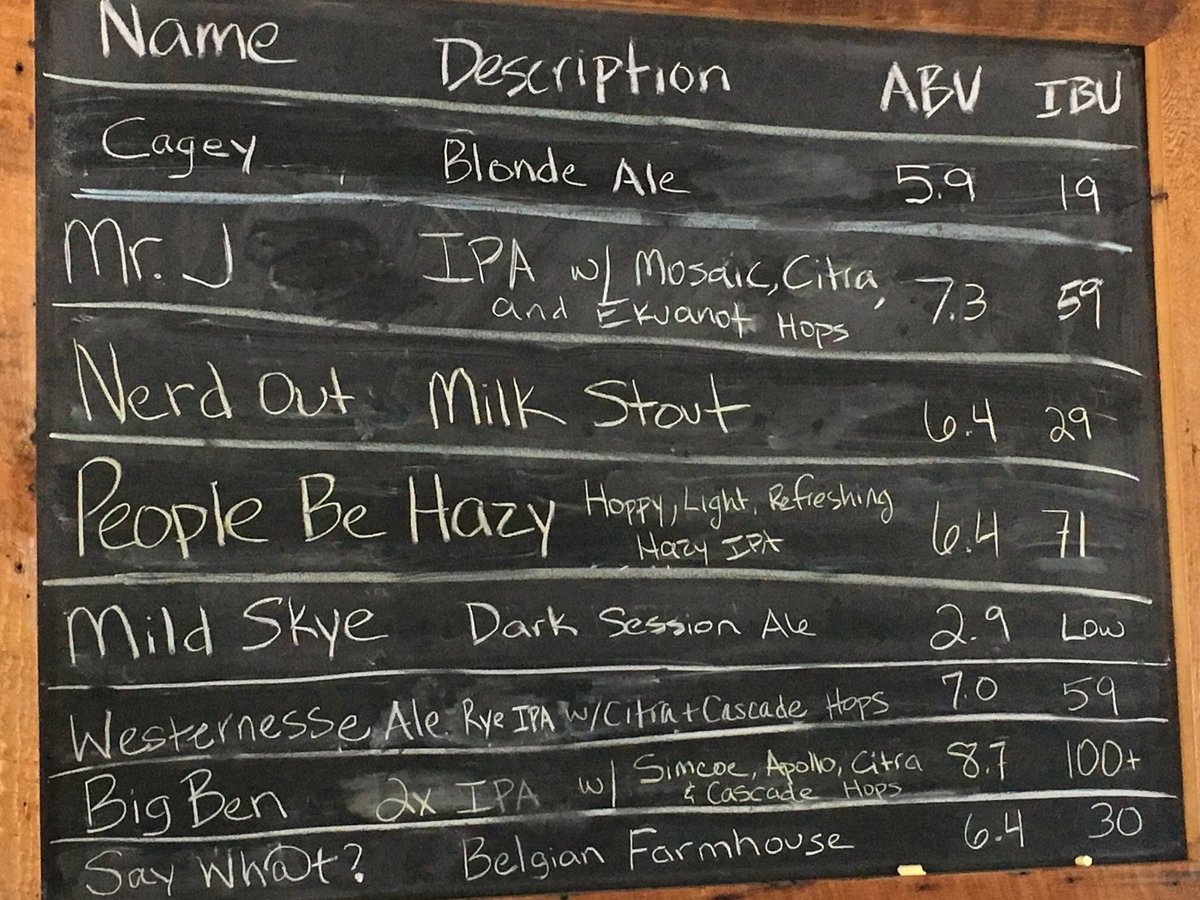 Name Description ABV IBU
Cagey Blonde Ale 5.9 19
Mr. J IPA w/ Mosaic, Citra, 7.3 59
and Ekuanot Hops
Nerd Out Milk Stout 6.4 29
People Be Hazy Hoppy, Light, Refreshing 6.4 71
Hazy IPA
Mild Skye Dark Session Ale 2.9 Low
Westernesse Ale Rye IPA w/Citra + Cascade Hops 7.0 59
Big Ben 2x IPA w/ Simcoe, Apollo, Citra 8.7 100+
& Cascade Hops
Say Wh@t? Belgian Farmhouse 6.4 30